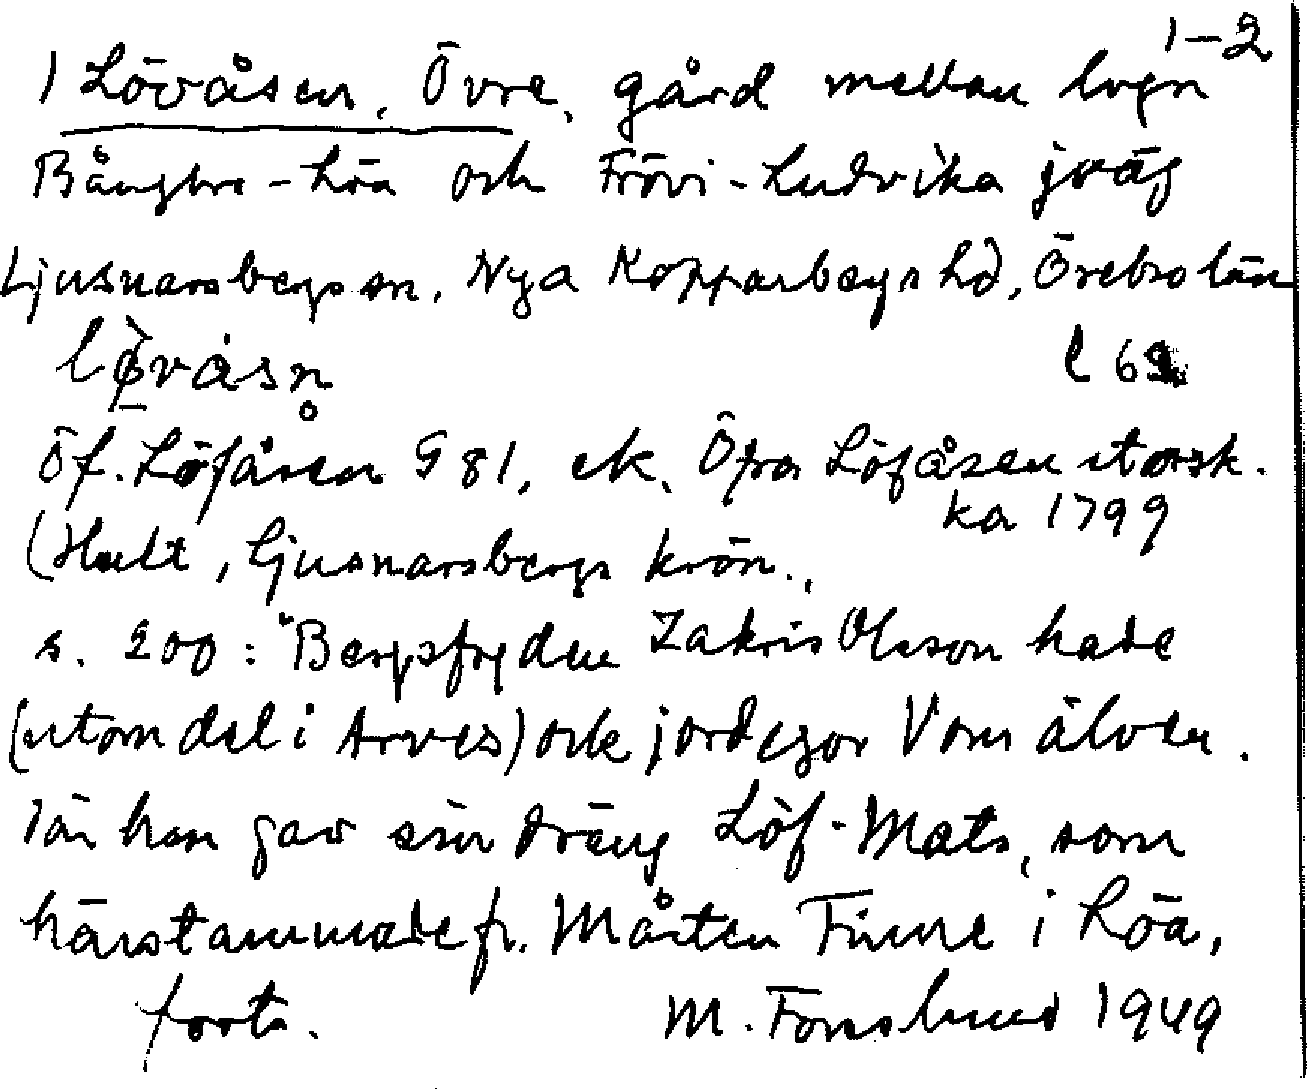 1-2
1 Lövåsen, Övre, gård mellan lvgn
Bångbro-Löa och Frövi-Ludvika jväg
Ljusnarsbergs sn, Nya Kopparbergs hd, Örebro län
l 6
Öf. Löfåsen G 81, ek. Öfra Löfåsen utorsk.
ka 1799
(Hult, Ljusnarsbergs krön.,
s. 200: "Bergsfogden Zakris Olsson hade
(utom del i Arves) och jordegor Vom älven.
Tän han gav sin dräng Löf-Mats, som
härstammade fr. Mårten Finne i Löa,
forts. M. Fornslund 1949